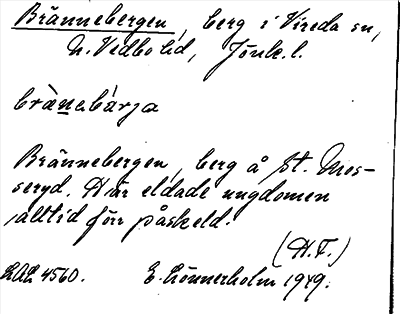 Brännebergen, berg i Vireda sn,
N. Vedbo hd, Jönk. l.
brànebárja
Brännebergen, berg å St. Mos-
seryd. Här eldade ungdomen
alltid förr påskeld.
(H.F.)
LAL 4560. E. Lönnerholm 1949.